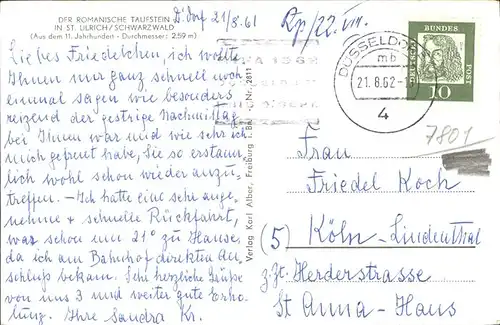 DER ROMANISCHE TAUFSTEIN
IN ST. ULRICH/SCHWARZWALD
(Aus dem 11. Jahrhundert - Durchmesser: 2,59 m)
D'dorf 21/8.61
Liebes Friedelchen, ich wollte
Ihnen nur ganz schnell noch
einmal sagen wie besonders
reizend der gestrige Nachmittag
bei Ihnen war und wie sehr ich
mich gefreut habe, Sie so erstaun
lich wohl schon wieder anzu
treffen. - Ich hatte eine sehr ange
nehme + schnelle Rückfahrt,
war schon um 21° zu Hause,
da ich am Bahnhof direkten An
schluß bekam. Sehr herzliche Grüße
von uns 3 und weiter gute Erho
lung. Ihre Sandra Kr.
Verlag Karl Alber, Freiburg i. Br. Nr. 2811
DÜSSELDORF
mb
21.8.62
4
DEUTSCHE
BUNDES
POST
10
7801
Frau
Friedel Koch
(5) Köln-Lindenthal
z.Zt. Herderstrasse
St Anna-Haus